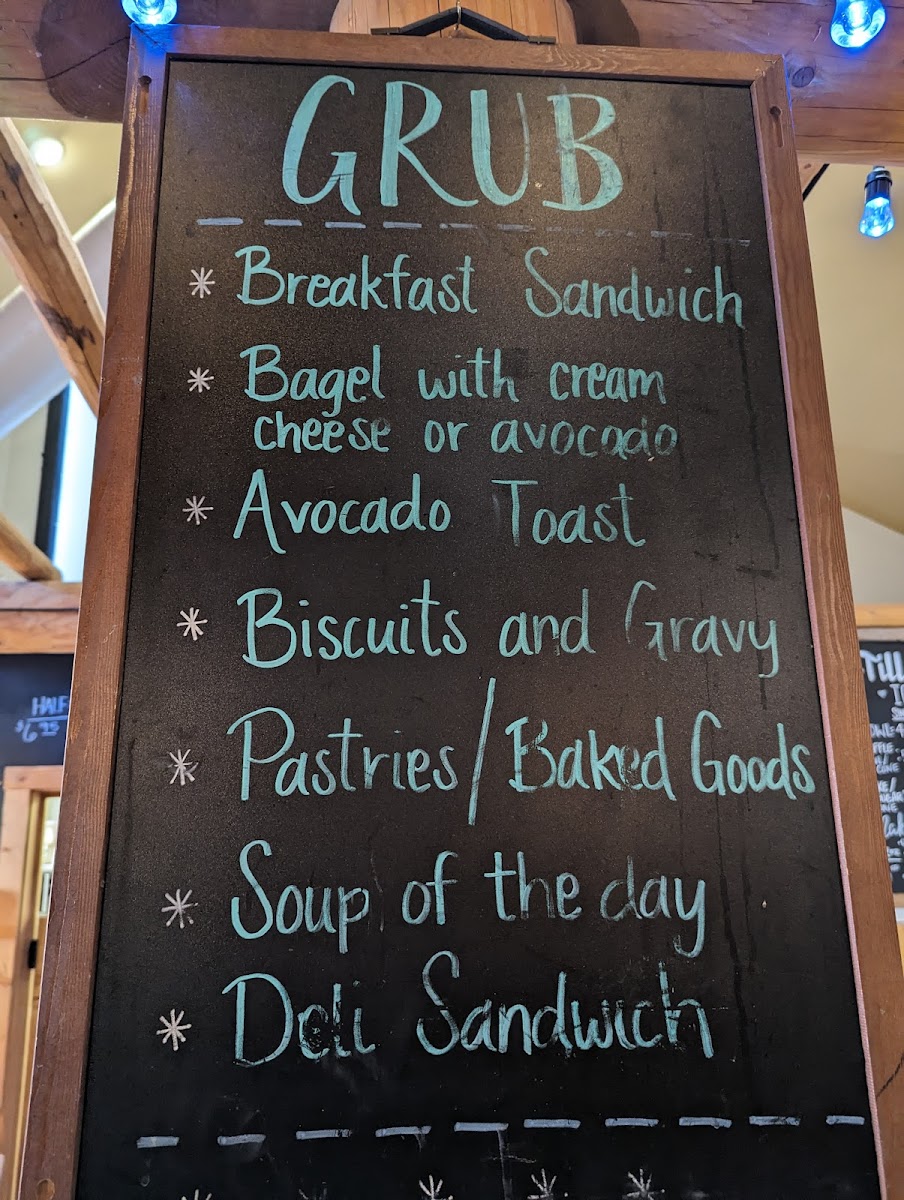 GRUB
* Breakfast Sandwich
* Bagel with cream
cheese or avocado
* Avocado Toast
* Biscuits and Gravy
* Pastries/Baked Goods
* Soup of the day
* Deli Sandwich
HALF
$6.95
Till